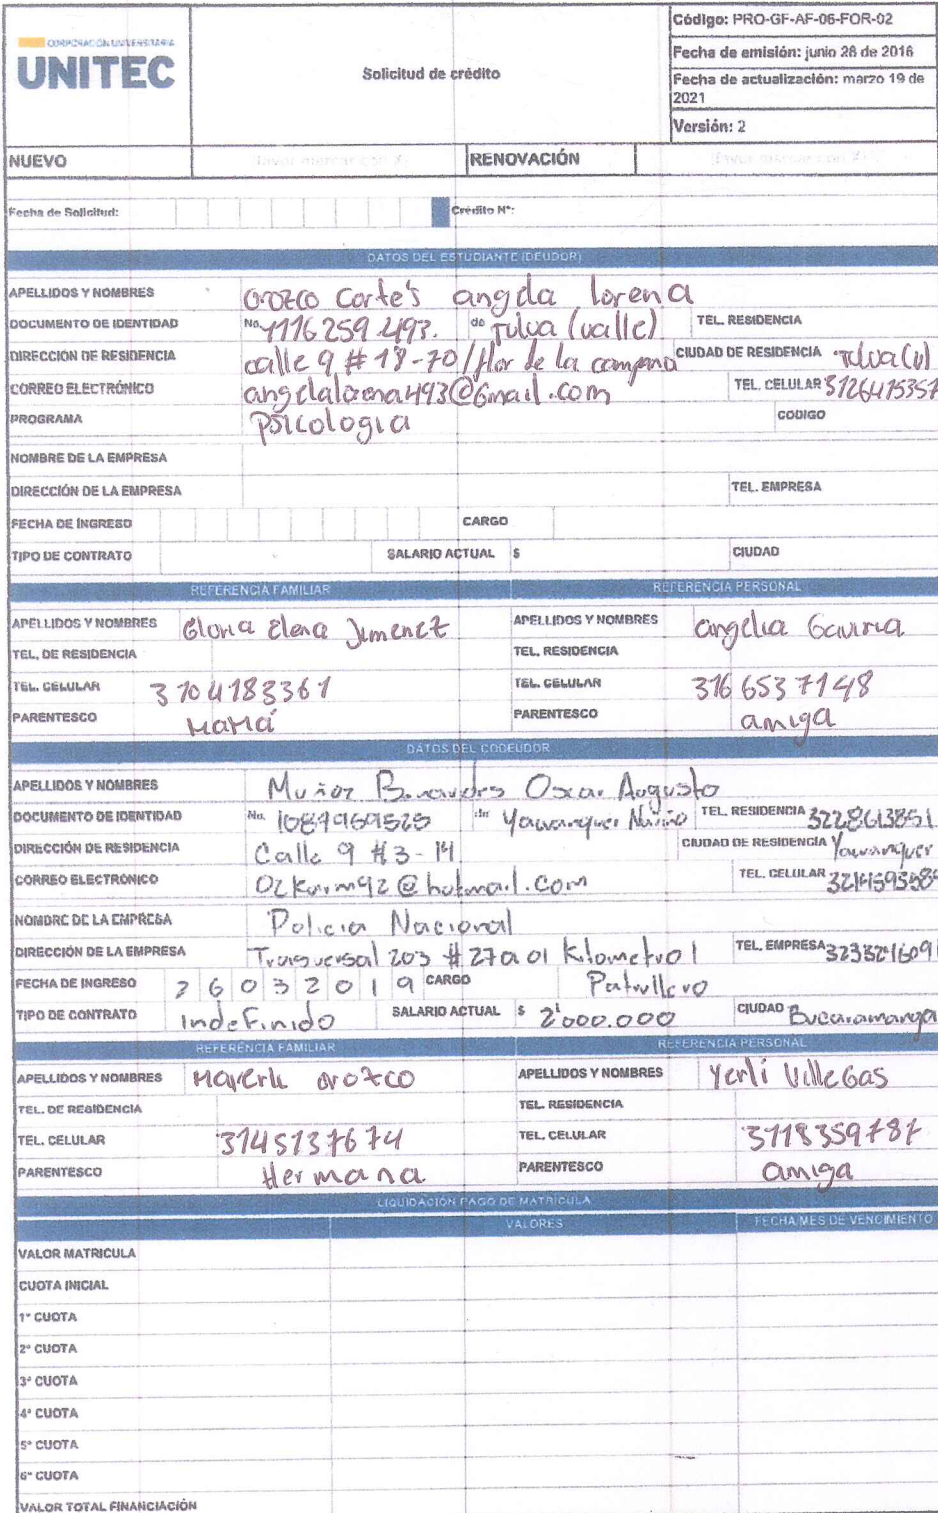 CORPORACIÓN UNIVERSITARIA
UNITEC
Solicitud de crédito
Código: PRO-GF-AF-06-FOR-02
Fecha de emisión: junio 28 de 2016
Fecha de actualización: marzo 19 de 2021
Versión: 2
NUEVO (favor marcar con X) RENOVACIÓN (favor marcar con X)
Fecha de Solicitud: Crédito N°:
DATOS DEL ESTUDIANTE (DEUDOR)
APELLIDOS Y NOMBRES orozco Cortés angela lorena
DOCUMENTO DE IDENTIDAD No. 1116259493. de Tulua (valle) TEL. RESIDENCIA
DIRECCIÓN DE RESIDENCIA calle 9 # 18-70 / flor de la campana CIUDAD DE RESIDENCIA Tulua (v)
CORREO ELECTRÓNICO angelalorena493@Gmail.com TEL. CELULAR 3126415357
PROGRAMA Psicologia CODIGO
NOMBRE DE LA EMPRESA
DIRECCIÓN DE LA EMPRESA TEL. EMPRESA
FECHA DE INGRESO CARGO
TIPO DE CONTRATO SALARIO ACTUAL $ CIUDAD
REFERENCIA FAMILIAR REFERENCIA PERSONAL
APELLIDOS Y NOMBRES Gloria Elena Jimenez APELLIDOS Y NOMBRES angelia Gaviria
TEL. DE RESIDENCIA TEL. RESIDENCIA
TEL. CELULAR 3104183361 TEL. CELULAR 316 6537148
PARENTESCO MaMá PARENTESCO amiga
DATOS DEL CODEUDOR
APELLIDOS Y NOMBRES Muñoz Benavides Oscar Augusto
DOCUMENTO DE IDENTIDAD No. 1089969525 de Yacuanquer Nariño TEL. RESIDENCIA 3228613851
DIRECCIÓN DE RESIDENCIA Calle 9 #3-14 CIUDAD DE RESIDENCIA Yacuanquer
CORREO ELECTRÓNICO Ozkarm92@hotmail.com TEL. CELULAR
NOMBRE DE LA EMPRESA Policia Nacional
DIRECCIÓN DE LA EMPRESA Transversal 203 #27a 01 Kilometro 1 TEL. EMPRESA
FECHA DE INGRESO 26032019 CARGO Patrullero
TIPO DE CONTRATO Indefinido SALARIO ACTUAL $ 2'000.000 CIUDAD Bucaramanga
REFERENCIA FAMILIAR REFERENCIA PERSONAL
APELLIDOS Y NOMBRES Mayerli orozco APELLIDOS Y NOMBRES Yerli VilleGas
TEL. DE RESIDENCIA TEL. RESIDENCIA
TEL. CELULAR 3145137674 TEL. CELULAR 3118359787
PARENTESCO Hermana PARENTESCO amiga
LIQUIDACIÓN PAGO DE MATRICULA
VALORES FECHA/MES DE VENCIMIENTO
VALOR MATRICULA
CUOTA INICIAL
1ª CUOTA
2ª CUOTA
3ª CUOTA
4ª CUOTA
5ª CUOTA
6ª CUOTA
VALOR TOTAL FINANCIACIÓN